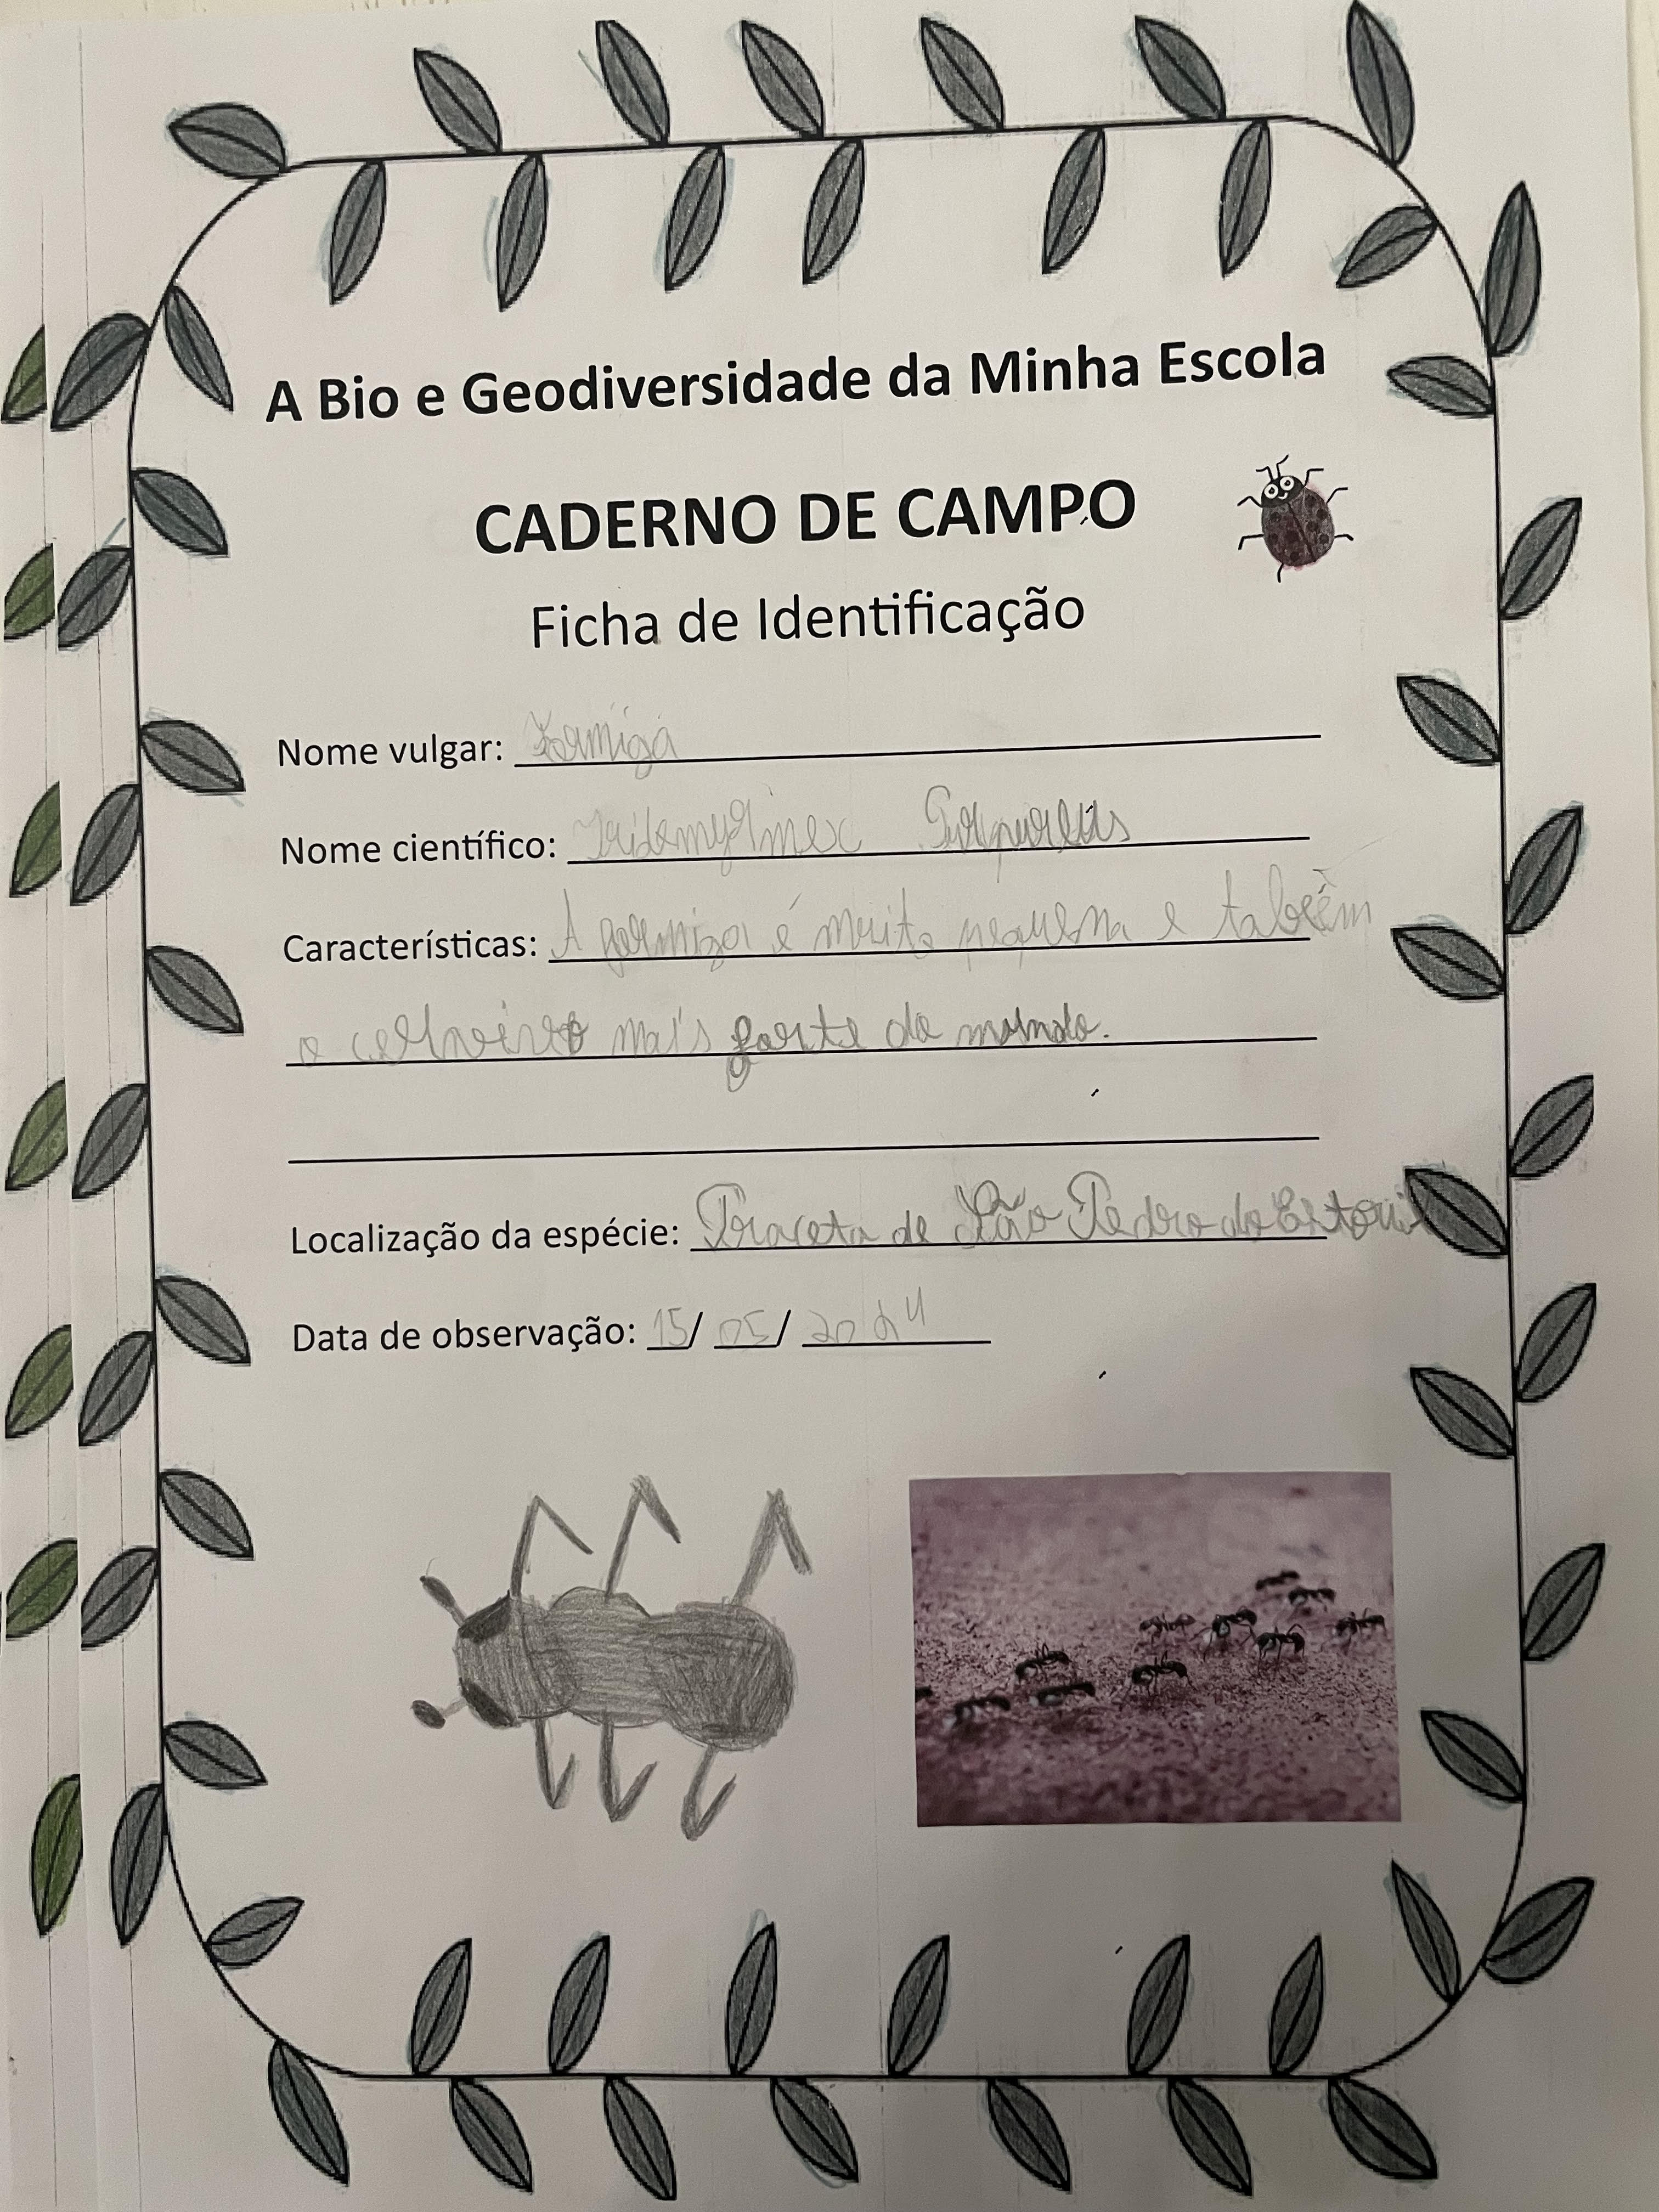 A Bio e Geodiversidade da Minha Escola
CADERNO DE CAMPO
Ficha de Identificação
Nome vulgar: Formiga
Nome científico: Iridomyrmex Purpureus
Características: A formiga é muito pequena e tabêm
o mais forte do mundo.
Localização da espécie: Praceta de São Pedro do Estoril
Data de observação: 15/ 05/ 2024